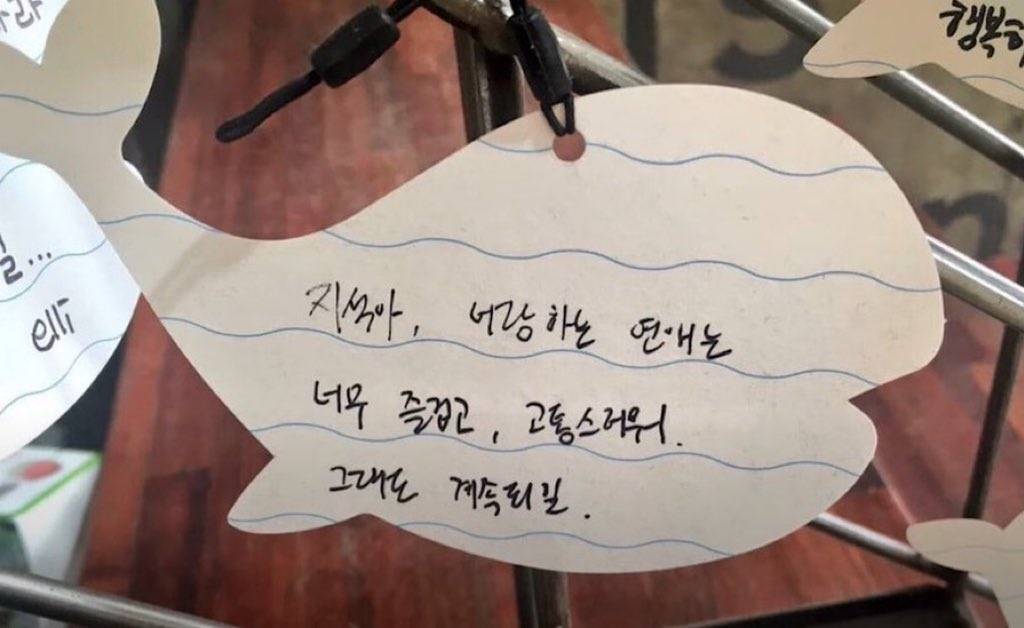 행복하
지석아, 너랑하는 연애는
너무 즐겁고, 고통스러워.
그래도 계속되길.
길...
elli